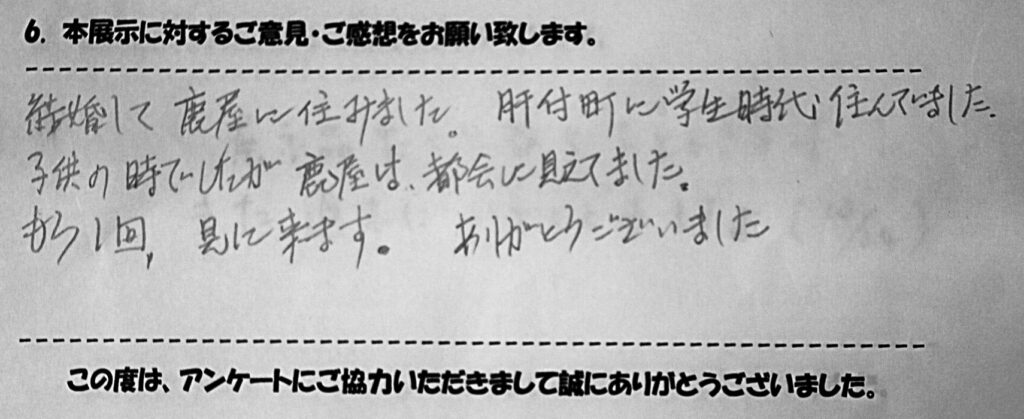 6. 本展示に対するご意見・ご感想をお願い致します。
結婚して鹿屋に住みました。肝付町に学生時代住んでいました.
子供の時でしたが鹿屋は、都会に見えてました。
もう1回,見に来ます。ありがとうございました
この度は、アンケートにご協力いただきまして誠にありがとうございました。